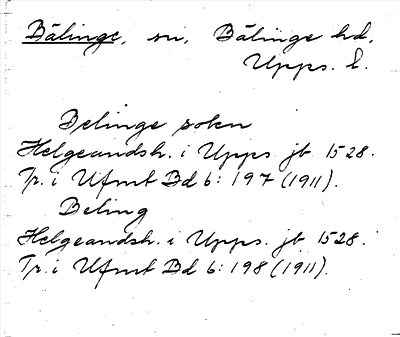 Bälinge, sn, Bälinge hd,
Upps. l.
Belinge soken
Helgeandsh. i Upps jb 1528.
Tr. i Ufmt Bd 6: 197 (1911).
Beling
Helgeandsh. i Upps. jb 1528.
Tr. i Ufmt Bd 6: 198 (1911).